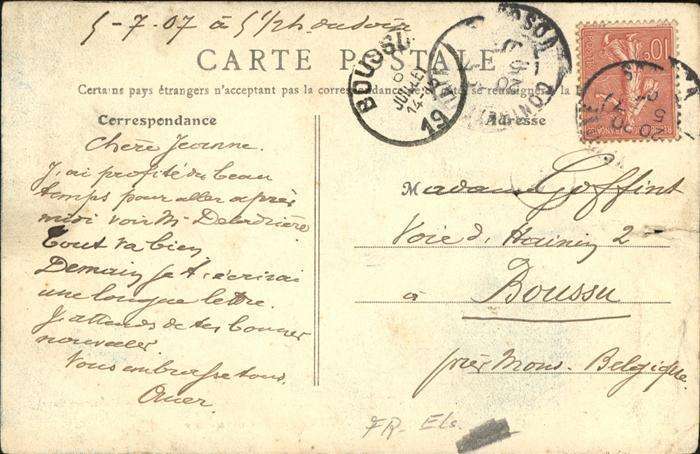 5-7-07 à 5 1/2 h. du soir
CARTE POSTALE
Certains pays étrangers n'acceptant pas la correspondance se renseigner à la
Correspondance
Adresse
BOUSSU
JUILLET
14-
19
10
Chère Jeanne.
J'ai profité du beau
temps pour aller après
midi voir Mr Deladrière
tout va bien
Demain je t'écrirai
une longue lettre.
J'attends de tes bonnes
nouvelles
Vous embrasse tous.
Omer.
Madame Goffint
Voie d. Hainin 2
à Boussu
près Mons. Belgique.
FR- Els.